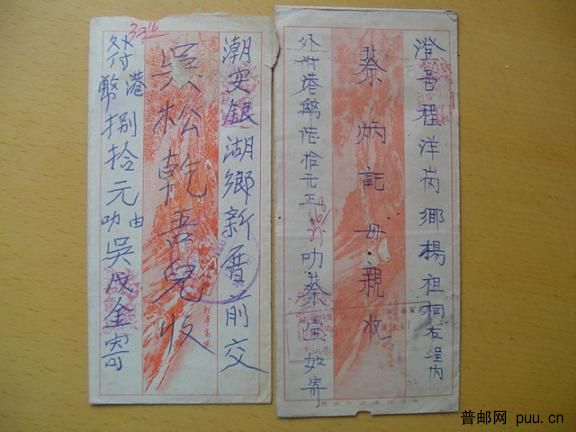 潮安銀湖鄉新厝前交
吴松乾吾兒收
外付港幣捌拾元
由叻吳成金寄
3216
澄邑程洋岗鄉楊祖祠右埕内
蔡炳記母親收
外附港幣陸拾元正
叻蔡如寄
普邮网 puu.cn